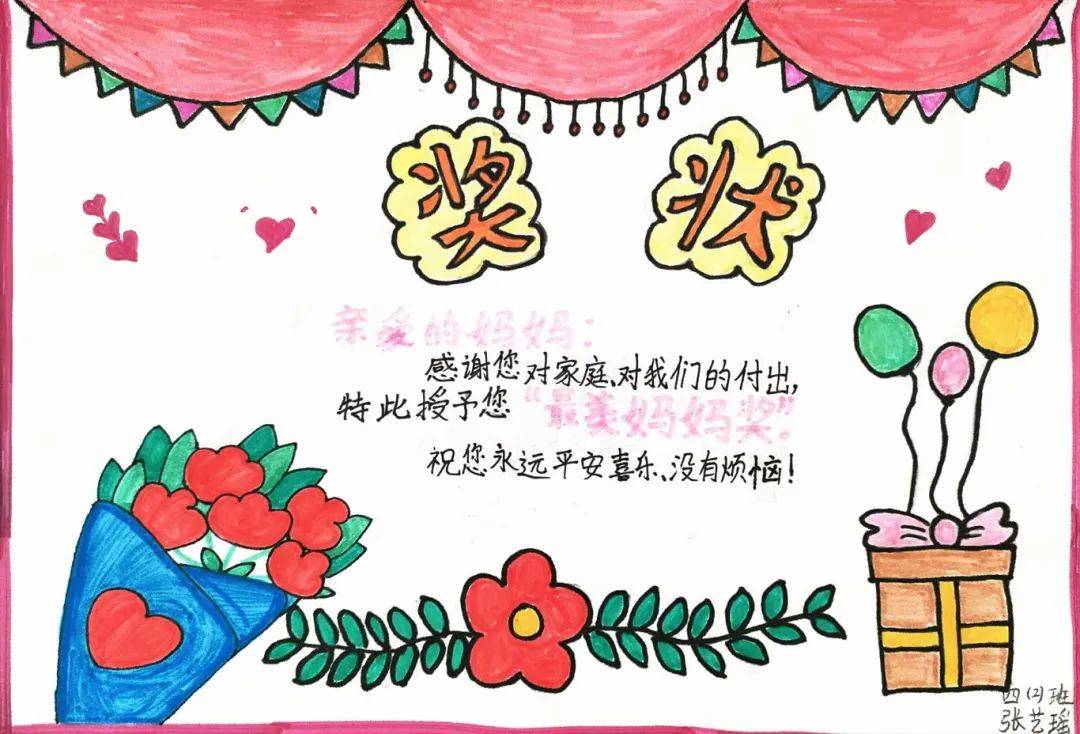 奖状
亲爱的妈妈：
感谢您对家庭、对我们的付出，
特此授予您“最美妈妈奖”。
祝您永远平安喜乐、没有烦恼！
四（2）班
张艺瑶